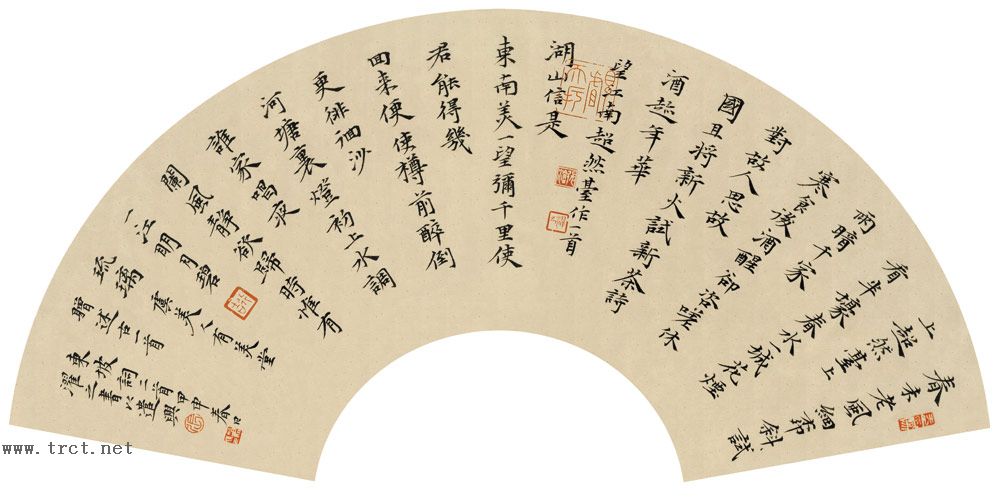 春未老風細柳斜斜試
上超然臺上
看半壕春水一城花煙
雨暗千家
寒食後酒醒卻咨嗟休
對故人思故
國且將新火試新茶詩
酒趁年華
望江南超然臺作一首
湖山信是
東南美一望彌千里使
君能得幾
回來便使樽前醉倒
更徘徊沙
河塘裏燈初上水調
誰家唱夜
闌風靜欲歸時惟有
一江明月碧
琉璃虞美人有美堂
贈述古一首
東坡詞二首甲申春日
濯之書以遣興
www.trct.net